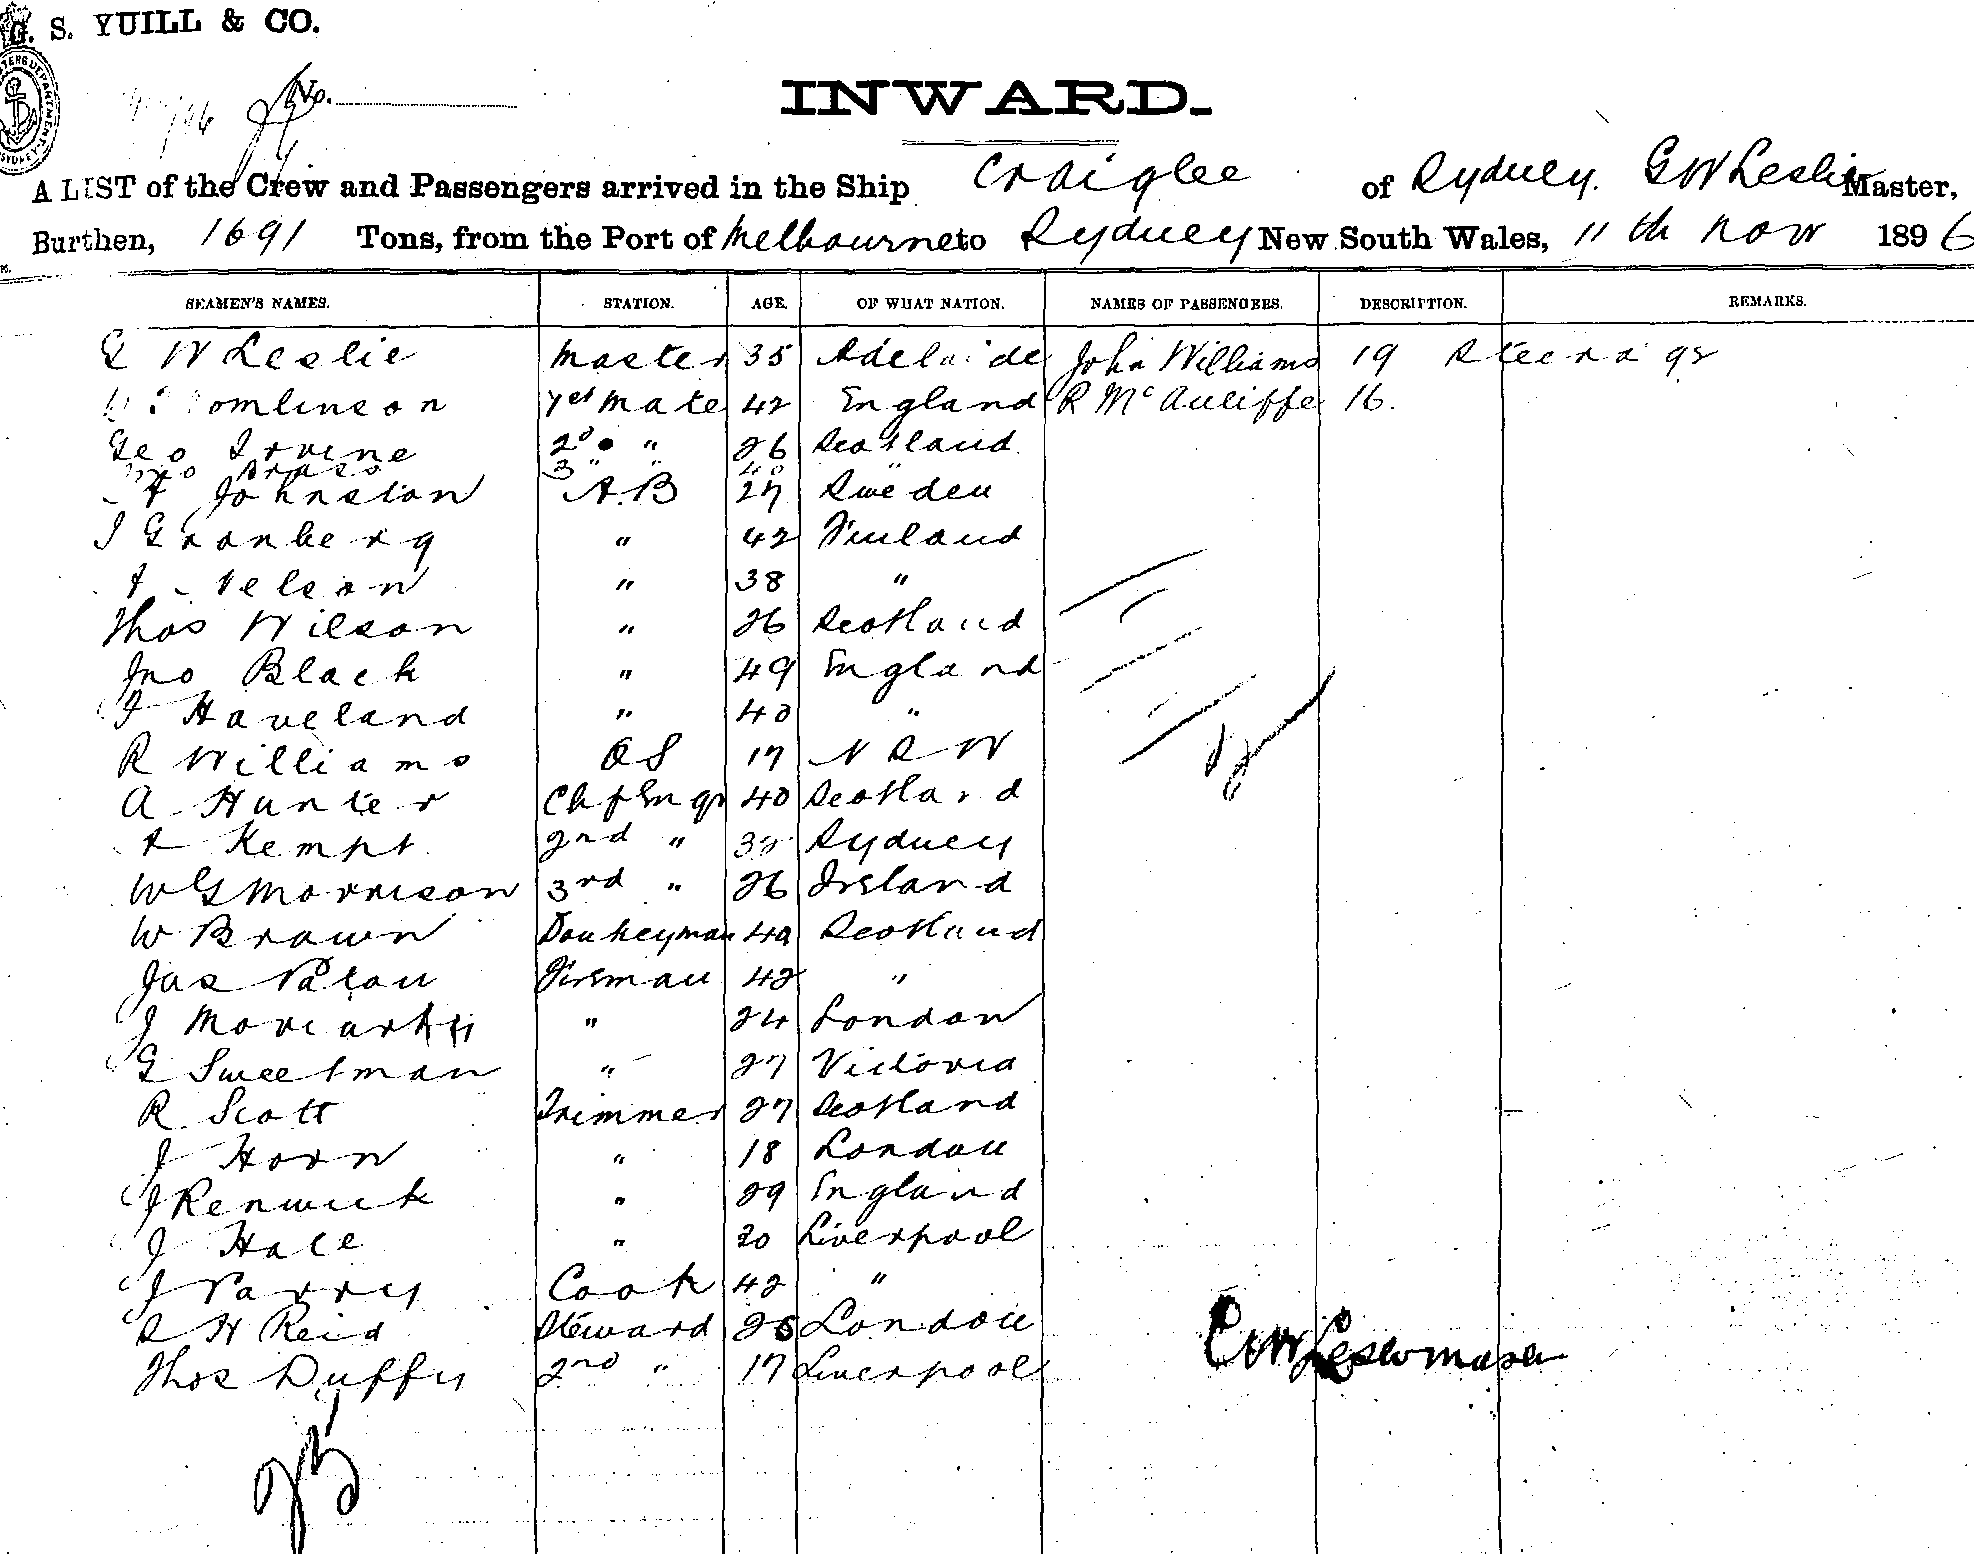 G. S. YUILL & CO.
No.
INWARD.
A LIST of the Crew and Passengers arrived in the Ship Craiglee of Sydney. G W Leslie Master,
Burthen, 1691 Tons, from the Port of Melbourne to Sydney New South Wales, 11th Nov 1896
SEAMEN'S NAMES. STATION. AGE. OF WHAT NATION. NAMES OF PASSENGERS. DESCRIPTION. REMARKS.
G W Leslie Master 35 Adelaide John Williams 19 Steerage
Tomlinson 1st Mate 42 England R McAuliffe 16.
Geo Irvine 2d " 26 Scotland
3 " " 40 "
Johnston A.B 27 Sweden
J Granberg " 42 Finland
Nelson " 38 "
Thos Wilson " 26 Scotland
Jno Black " 49 England
J Haveland " 40 "
R Williams OS 17 N S W
A Hunter Chf Engr 40 Scotland
A Kempt 2nd " 32 Sydney
W G Morrison 3rd " 26 Ireland
W Brown Donkeyman 40 Scotland
Jas Paton Fireman 42 "
J Moriarty " 24 London
G Sweetman " 27 Victoria
R Scott Trimmer 27 Scotland
J Horn " 18 London
J Renwick " 29 England
J Hale " 20 Liverpool
J Parry Cook 42 "
S H Reid Steward 26 London
Thos Duffy 2nd " 17 Liverpool
25